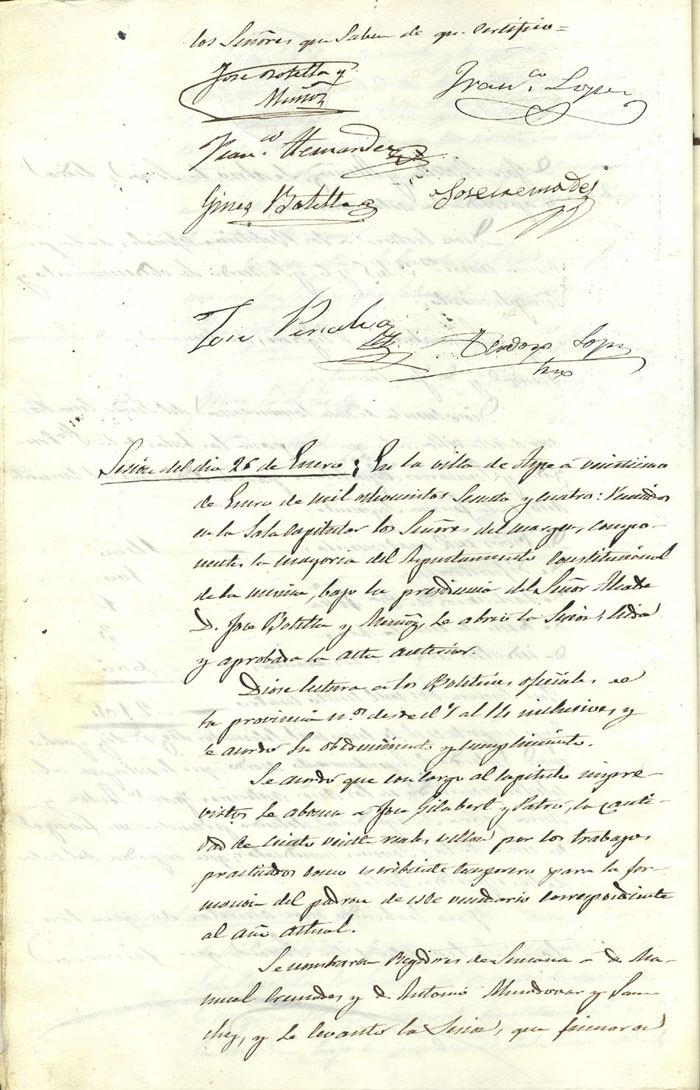 los Señores que Saben de que Certifico=
Jose Botella y
Muñoz
Fran.co Lopez
Fran.co Hernandez
Gines Botella
Jose Cremades
Jose Penalva
Teodoro Lopez
Sesion del dia 26 de Enero; En la villa de Aspe á veintiseis
de Enero de mil ochocientos Sesenta y cuatro: Reunidos
en la Sala Capitular los Señores del margen, compo-
nentes la mayoria del Ayuntamiento Constitucional
de la misma, bajo la presidencia del Señor Alcalde
D. Jose Botella y Muñoz, se abrio la Sesion, leida
y aprobada la acta anterior.
Diose lectura a los Boletines oficiales de
la provincia n.os desde el 7 al 14 inclusives, y
se acordó su obedecimiento y cumplimiento.
Se acordó que con cargo al capitulo impre-
vistos se abone a Jose Gilabert y Pastor, la canti-
dad de ciento veinte reales vellon por los trabajos
practicados como escribiente temporero para la for-
macion del padron de este vecindario correspondiente
al año actual.
Se nombraron Regidores de Semana a d. Ma-
nuel Cremades y d. Antonio Mundovar y San-
chez, y se levantó la Sesion, que firmaron